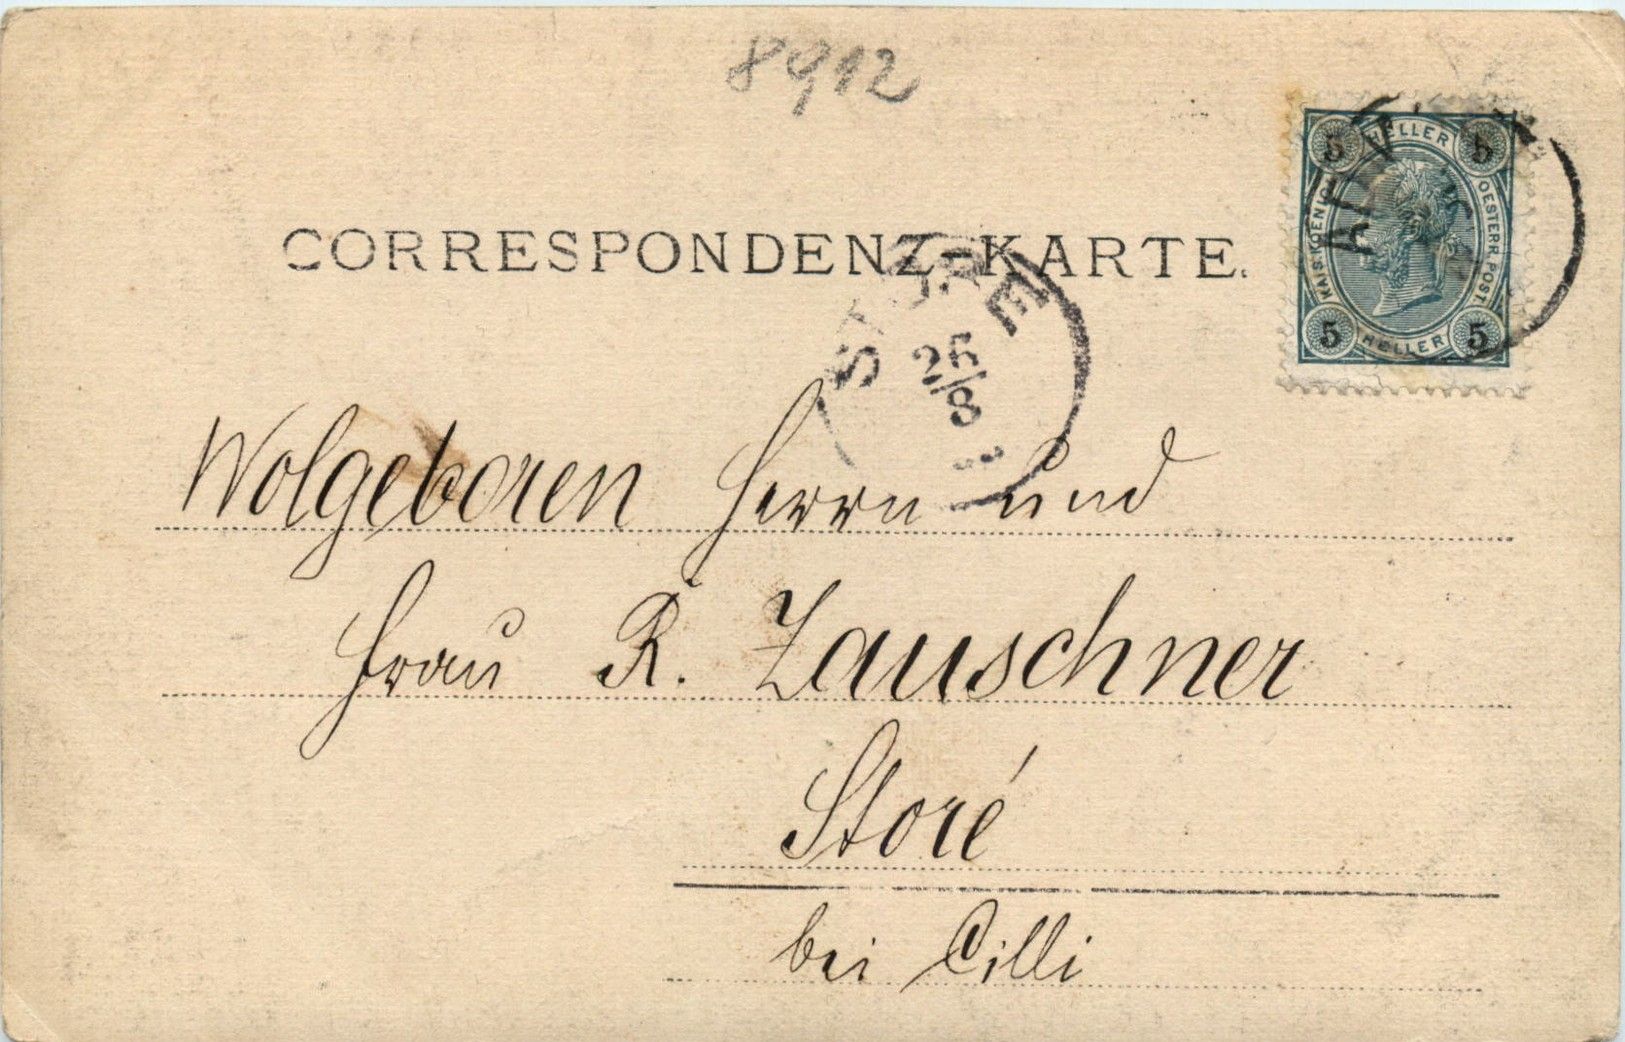 8912
5 HELLER 5
KAIS. KOENIGL. OESTERR. POST.
5 HELLER 5
CORRESPONDENZ-KARTE.
STORE
25/8
Wolgeboren Herrn und
Frau R. Zauschner
Storé
bei Cilli